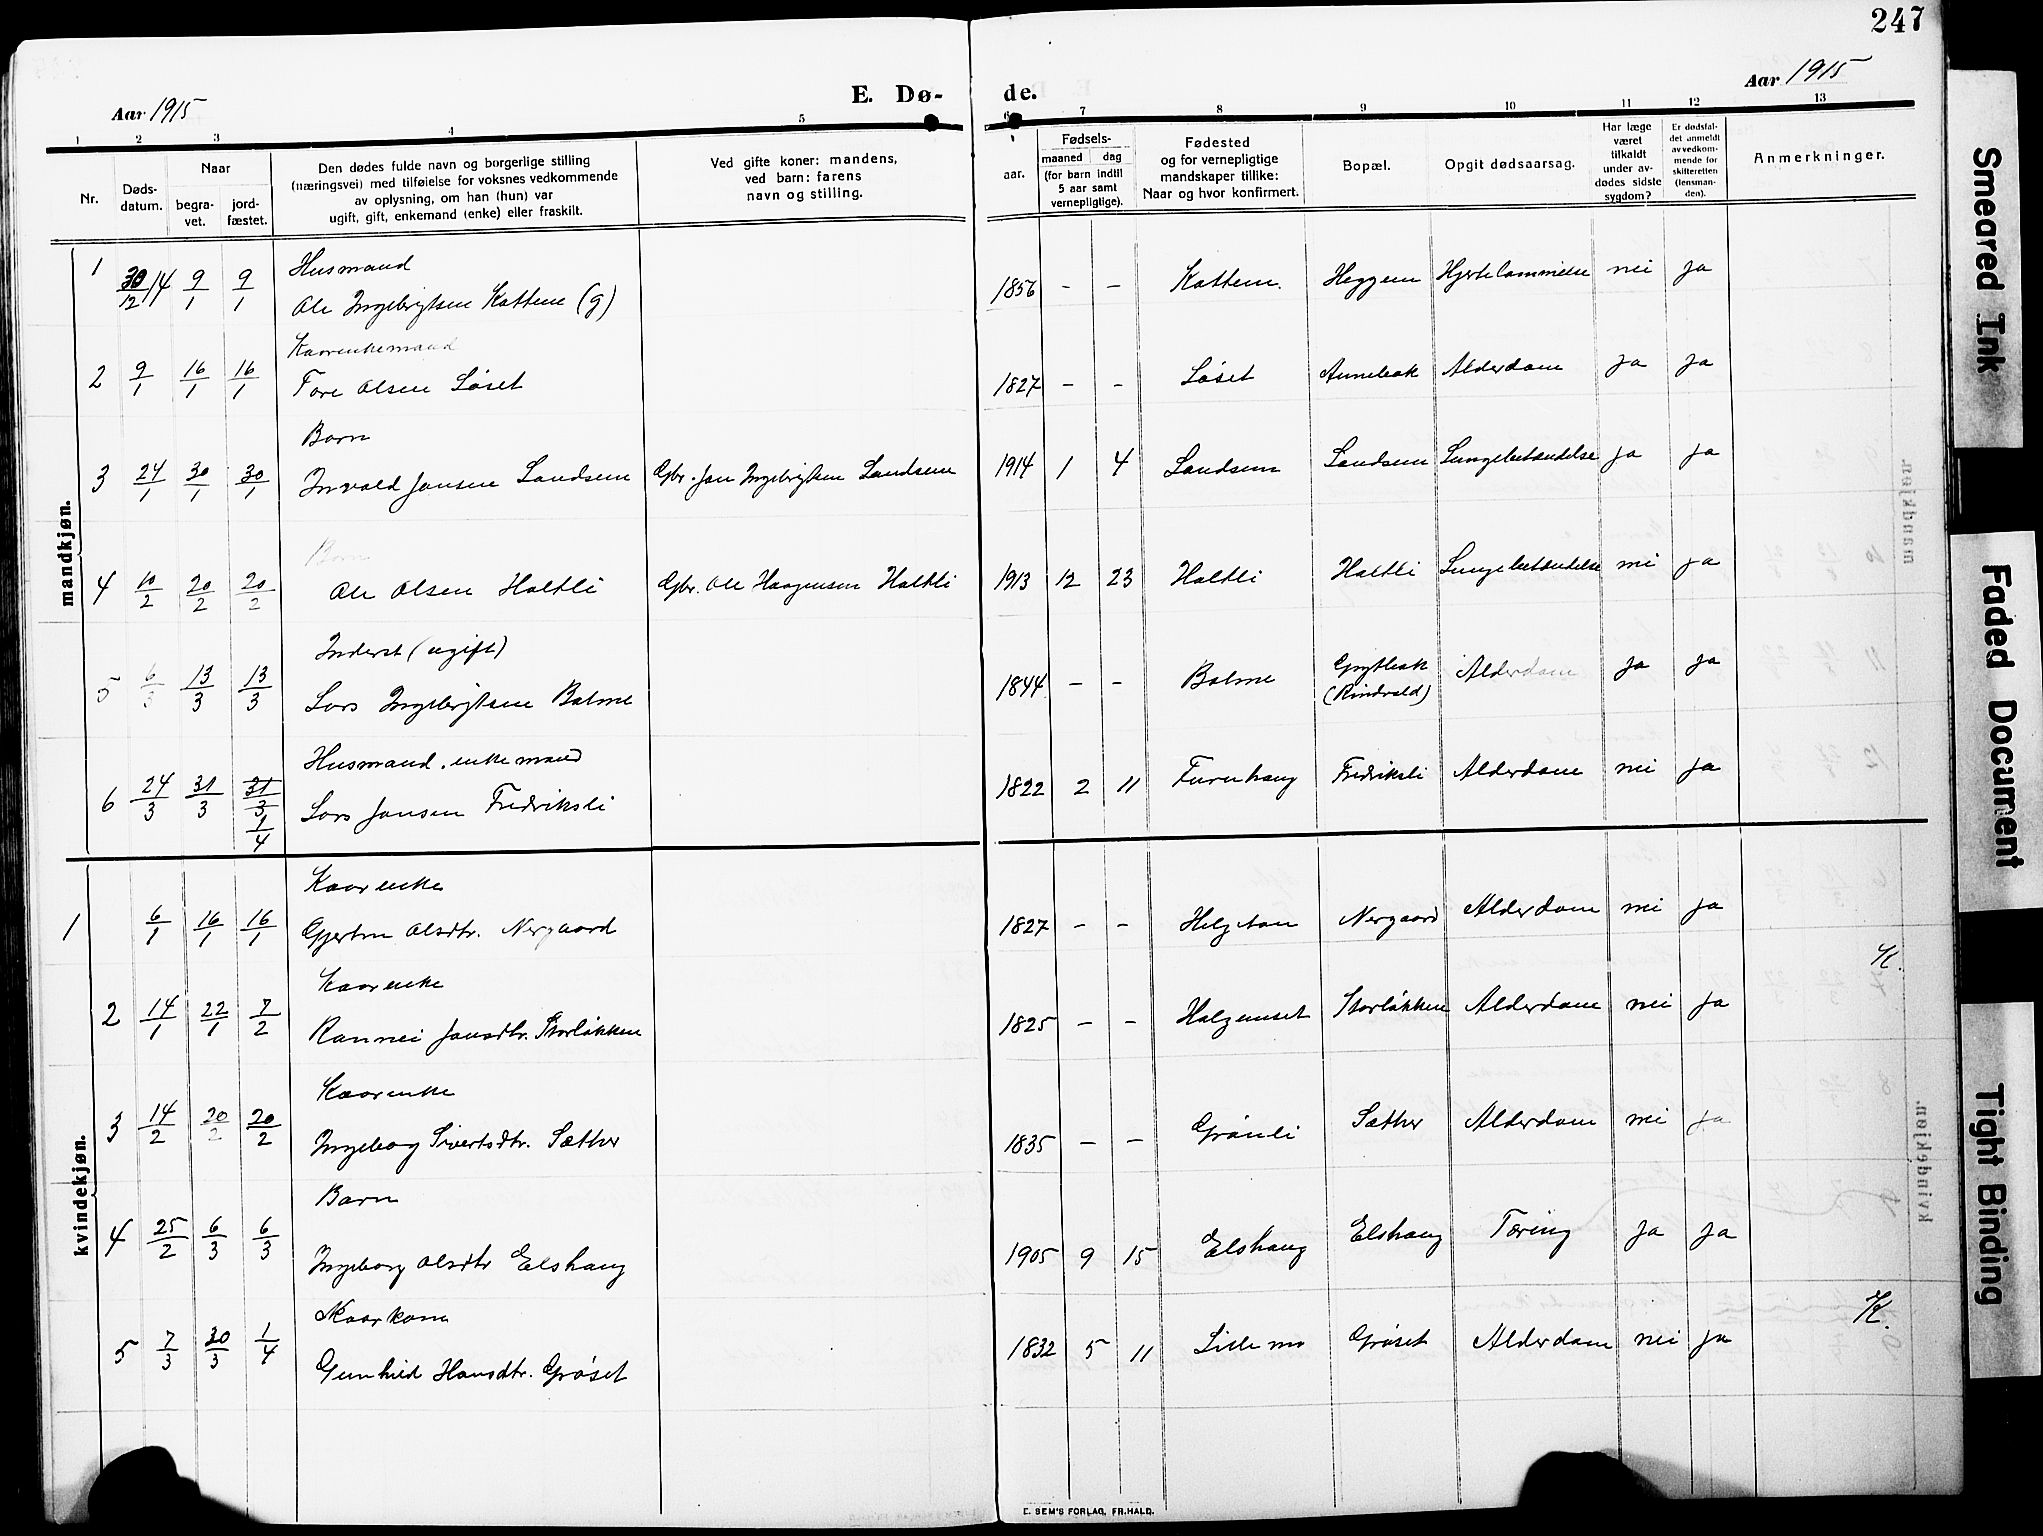 247
Aar 1915
E. Dø-
de.
Aar 1915
1 2 3 4 5 6 7 8 9 10 11 12 13
Nr.
Døds-
datum.
Naar
begra-
vet.
jord-
fæstet.
Den dødes fulde navn og borgerlige stilling
(næringsvei) med tilføielse for voksnes vedkommende
av oplysning, om han (hun) var
ugift, gift, enkemand (enke) eller fraskilt.
Ved gifte koner: mandens,
ved barn: farens
navn og stilling.
aar.
Fødsels-
maaned dag
(for barn indtil
5 aar samt
vernepligtige).
Fødested
og for vernepligtige
mandskaper tillike:
Naar og hvor konfirmert.
Bopæl.
Opgit dødsaarsag.
Har læge
været
tilkaldt
under av-
dødes sidste
sygdom?
Er dødsfal-
det anmeldt
av vedkom-
mende for
skifteretten
(lensman-
den).
Anmerkninger.
mandkjøn.
Husmand
1 30/12 14 9/1 9/1 Ole Ingebrigtsen Kattem (g) 1856 - - Kattem. Heggem Hjertelammelse nei ja
Kaarenkemand
2 9/1 16/1 16/1 Tore Olsen Løset 1827 - - Løset Annebak Alderdom ja ja
Barn
3 24/1 30/1 30/1 Invald Jonsen Landsem Gbr. Jon Ingebrigtsen Landsem 1914 1 4 Landsem Landsem Lungebetændelse ja ja
Barn
4 10/2 20/2 20/2 Ole Olsen Holtli Gbr. Ole Haagensen Holtli 1913 12 23 Holtli Holtli Lungebetændelse nei ja
Inderst (ugift)
5 6/3 13/3 13/3 Lars Ingebrigtsen Bolme 1844 - - Bolme Grytbak (Rindvald) Alderdom ja ja
Husmand. enkemand
6 24/3 31/3 31/3 1/4 Lars Jonsen Fredriksli 1822 2 11 Furuhaug Fredriksli Alderdom nei ja
kvindekjøn.
Kaarenke
1 6/1 16/1 16/1 Gjertru Olsdtr. Nergaard 1827 - - Helgetun Nergaard Alderdom nei ja
K.
Kaarenke
2 14/1 22/1 7/2 Rannei Jonsdtr. Storløkken 1825 - - Halgunset Storløkken Alderdom nei ja
Kaarenke
3 14/2 20/2 20/2 Ingeborg Sivertsdtr. Sæther 1835 - - Grønli Sæther Alderdom nei ja
Barn
4 25/2 6/3 6/3 Ingeborg Olsdtr Elshaug 1905 9 15 Elshaug Elshaug Tæring ja ja
K.
Kaarkone
5 7/3 30/3 1/4 Gunhild Hansdtr. Grøset 1832 5 11 Lillemo Grøset Alderdom nei ja
E. SEM'S FORLAG, FR.HALD.
Smeared Ink
Faded Document
Tight Binding